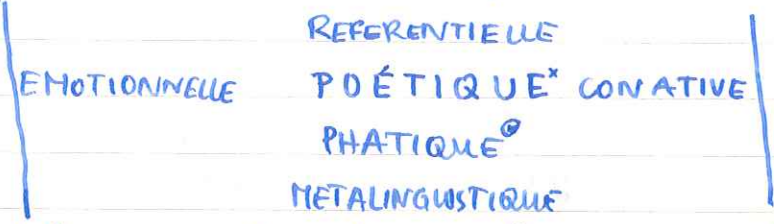 REFERENTIELLE
EMOTIONNELLE POÉTIQUE× CONATIVE
PHATIQUE
METALINGUISTIQUE